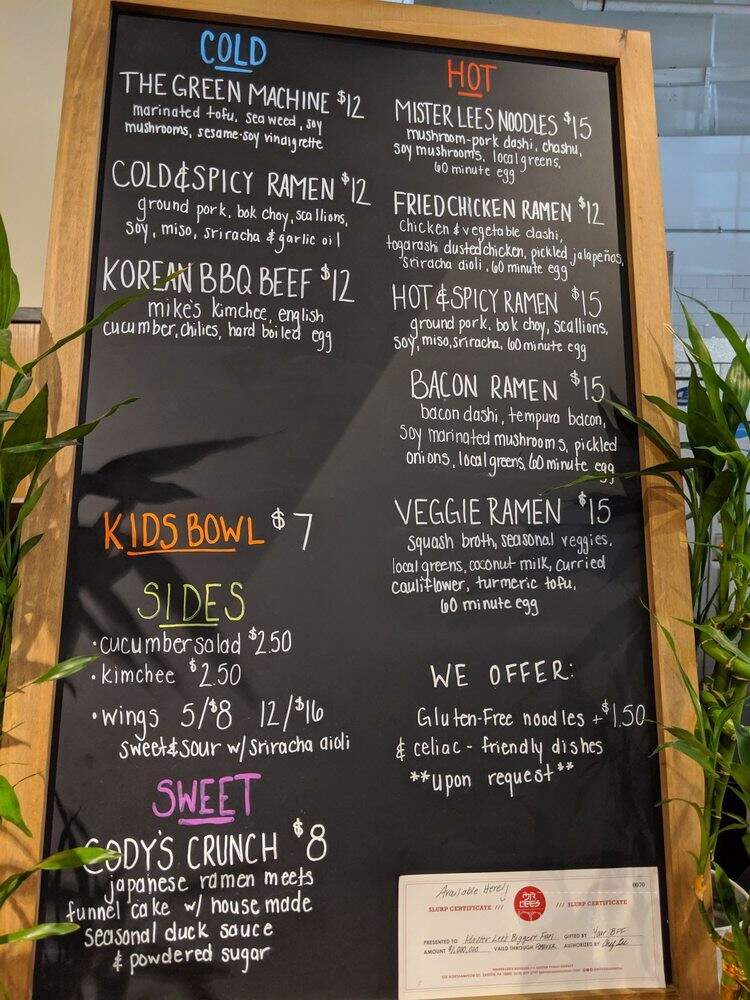 COLD
THE GREEN MACHINE $12
marinated tofu, seaweed, soy
mushrooms, sesame-soy vinaigrette
COLD & SPICY RAMEN $12
ground pork, bok choy, scallions,
soy, miso, sriracha & garlic oil
KOREAN BBQ BEEF $12
mike's kimchee, english
cucumber, chilies, hard boiled egg
KIDS BOWL $7
SIDES
•cucumber salad $2.50
•kimchee $2.50
•wings 5/$8 12/$16
sweet & sour w/ sriracha aioli
SWEET
CODY'S CRUNCH $8
japanese ramen meets
funnel cake w/ house made
seasonal duck sauce
& powdered sugar
HOT
MISTER LEES NOODLES $15
mushroom-pork dashi, chashu,
soy mushrooms, local greens,
60 minute egg
FRIED CHICKEN RAMEN $12
Chicken & vegetable dashi,
togarashi dusted chicken, pickled jalapeños,
sriracha aioli, 60 minute egg
HOT & SPICY RAMEN $15
ground pork, bok choy, scallions,
soy, miso, sriracha, 60 minute egg
BACON RAMEN $15
bacon dashi, tempura bacon,
soy marinated mushrooms, pickled
onions, local greens, 60 minute egg
VEGGIE RAMEN $15
squash broth, seasonal veggies,
local greens, coconut milk, curried
cauliflower, turmeric tofu,
60 minute egg
WE OFFER:
Gluten-Free noodles +$1.50
& celiac-friendly dishes
**upon request**
Available Here!
0070
SLURP CERTIFICATE /// MR LEES /// SLURP CERTIFICATE
PRESENTED TO Mister Lee's Biggest Fan GIFTED BY Your BFF
AMOUNT $1,000,000 VAILD THROUGH FOREVER AUTHORIZED BY